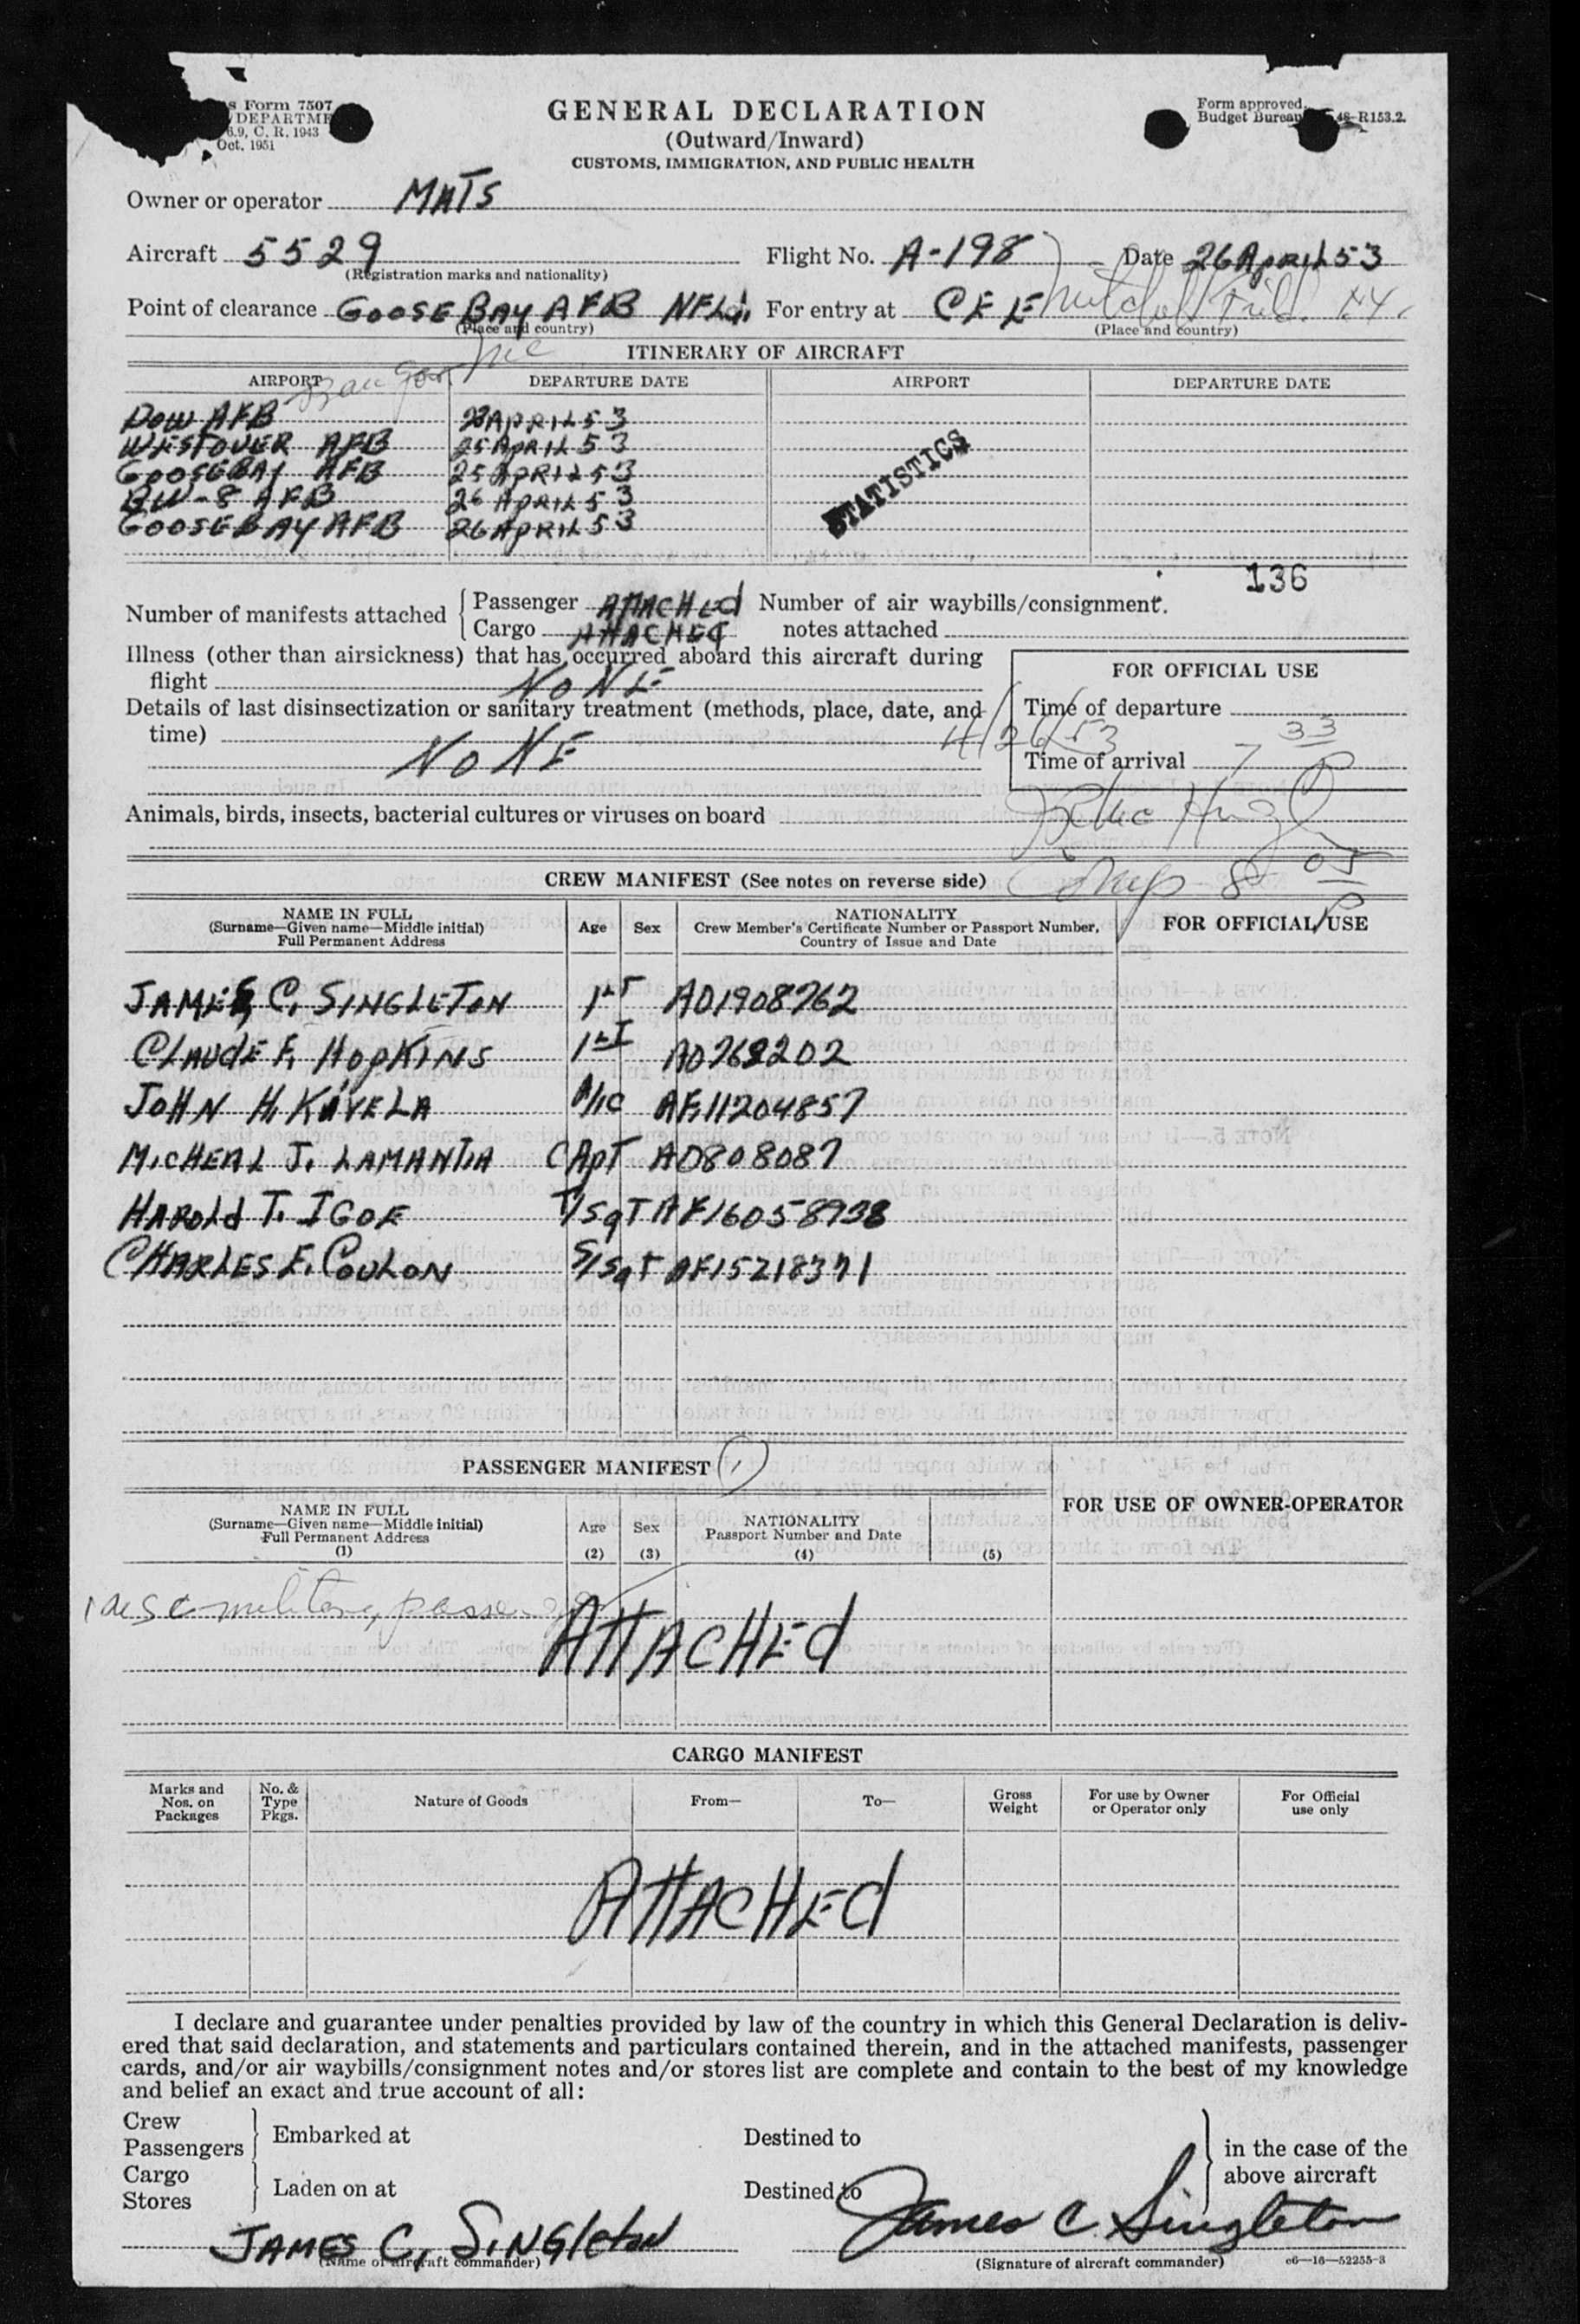 s Form 7507
DEPARTME
6.9, C. R. 1943
Oct. 1951
GENERAL DECLARATION
(Outward/Inward)
CUSTOMS, IMMIGRATION, AND PUBLIC HEALTH
Form approved.
Budget Bureau 48-R153.2.
Owner or operator MATS
Aircraft 5529
(Registration marks and nationality)
Flight No. A-198 Date 26 APRIL 53
Point of clearance GOOSE BAY AFB NFLd.
(Place and country)
For entry at CEF Mitchel Field. NY.
(Place and country)
ITINERARY OF AIRCRAFT
AIRPORT DEPARTURE DATE AIRPORT DEPARTURE DATE
Bangor Me
DOW AFB 23 APRIL 53
WESTOVER AFB 25 APRIL 53
GOOSEBAY AFB 25 APRIL 53
BW-8 AFB 26 APRIL 53
GOOSEBAY AFB 26 APRIL 53
STATISTICS
136
Number of manifests attached
Passenger ATTACHEd
Cargo ATTACHEd
Number of air waybills/consignment
notes attached
Illness (other than airsickness) that has occurred aboard this aircraft during
flight NONE
Details of last disinsectization or sanitary treatment (methods, place, date, and
time)
NONE
FOR OFFICIAL USE
Time of departure
4/26/53
Time of arrival 7 33 P
Animals, birds, insects, bacterial cultures or viruses on board
8 05 P
CREW MANIFEST (See notes on reverse side)
NAME IN FULL
(Surname—Given name—Middle initial)
Full Permanent Address
Age
Sex
NATIONALITY
Crew Member's Certificate Number or Passport Number,
Country of Issue and Date
FOR OFFICIAL USE
JAMES C. SINGLETON 1LT AO1908762
CLAUDE F. HOPKINS 1LT AO768202
JOHN H. KAVELA A/1C AF11204857
MICHEAL J. LAMANTIA CAPT AO808087
HAROLd T. IGOE T/SgT AF16058938
CHARLES F. COULON S/SgT AF15218371
PASSENGER MANIFEST (1)
NAME IN FULL
(Surname—Given name—Middle initial)
Full Permanent Address
(1)
Age
(2)
Sex
(3)
NATIONALITY
Passport Number and Date
(4)
(5)
FOR USE OF OWNER-OPERATOR
1 U S C military passenger
ATTACHEd
CARGO MANIFEST
Marks and
Nos. on
Packages
No. &
Type
Pkgs.
Nature of Goods
From—
To—
Gross
Weight
For use by Owner
or Operator only
For Official
use only
ATTACHEd
I declare and guarantee under penalties provided by law of the country in which this General Declaration is deliv-
ered that said declaration, and statements and particulars contained therein, and in the attached manifests, passenger
cards, and/or air waybills/consignment notes and/or stores list are complete and contain to the best of my knowledge
and belief an exact and true account of all:
Crew
Passengers
Embarked at
Destined to
Cargo
Stores
Laden on at
Destined to
in the case of the
above aircraft
JAMES C. SINGLETON
(Name of aircraft commander)
James C. Singleton
(Signature of aircraft commander)
c6—16—52255-3